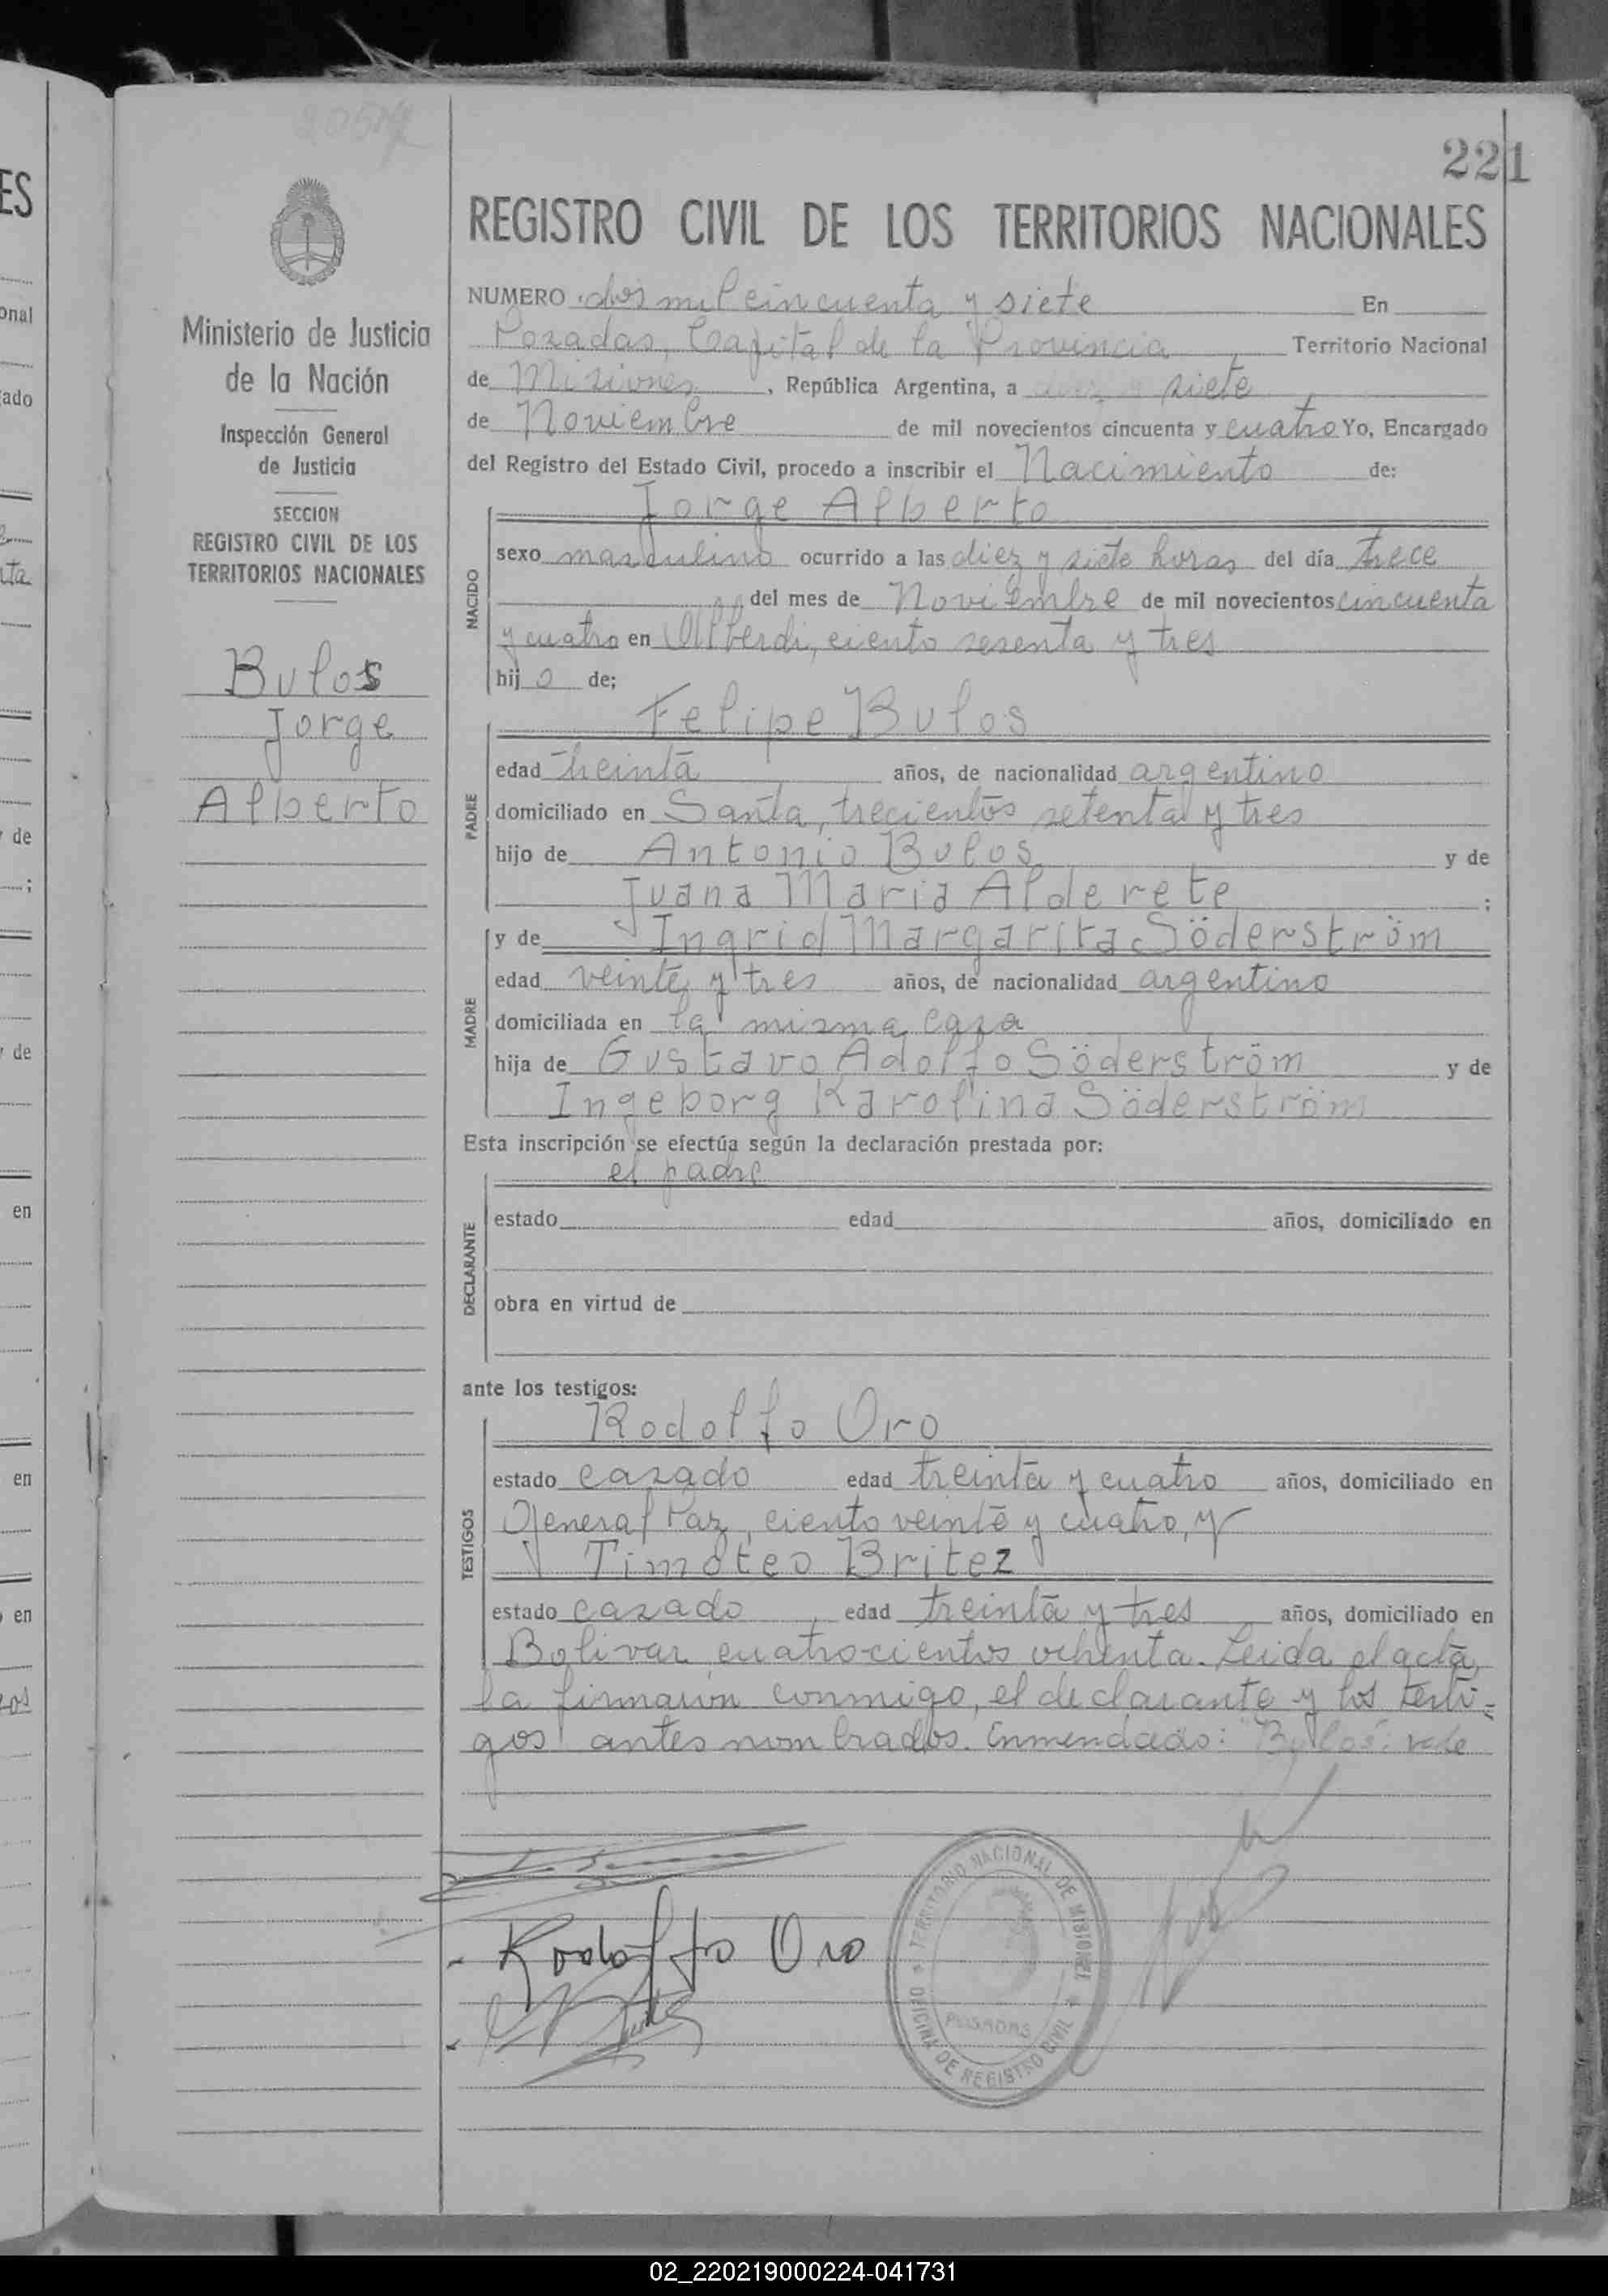 2057
221
REGISTRO CIVIL DE LOS TERRITORIOS NACIONALES
Ministerio de Justicia
de la Nación
Inspección General
de Justicia
SECCION
REGISTRO CIVIL DE LOS
TERRITORIOS NACIONALES
Bulos
Jorge
Alberto
NUMERO dos mil cincuenta y siete En
Posadas, Capital de la Provincia Territorio Nacional
de Misiones, República Argentina, a diez y siete
de Noviembre de mil novecientos cincuenta y cuatro Yo, Encargado
del Registro del Estado Civil, procedo a inscribir el Nacimiento de:
NACIDO
Jorge Alberto
sexo masculino ocurrido a las diez y siete horas del día trece
del mes de Noviembre de mil novecientos cincuenta
y cuatro en Alberdi, ciento sesenta y tres
hijo de;
PADRE
Felipe Bulos
edad treinta años, de nacionalidad argentino
domiciliado en Santa, trecientos setenta y tres
hijo de Antonio Bulos y de
Juana Maria Alderete ;
MADRE
y de Ingrid Margarita Söderström
edad veinte y tres años, de nacionalidad argentino
domiciliada en la misma casa
hija de Gustavo Adolfo Söderström y de
Ingeborg Karolina Söderström
Esta inscripción se efectúa según la declaración prestada por:
DECLARANTE
el padre
estado edad años, domiciliado en
obra en virtud de
ante los testigos:
TESTIGOS
Rodolfo Oro
estado casado edad treinta y cuatro años, domiciliado en
General Paz, ciento veinte y cuatro, y
Timoteo Britez
estado casado, edad treinta y tres años, domiciliado en
Bolivar cuatrocientos ochenta. Leida el acta,
la firmaron conmigo, el declarante y los testi-
gos antes nombrados. Enmendado: "Bulos": vale
Rodolfo Oro
TERRITORIO NACIONAL DE MISIONES
POSADAS
OFICINA DE REGISTRO CIVIL
ES
onal
ado
ta
de
;
de
en
en
en
02_220219000224-041731